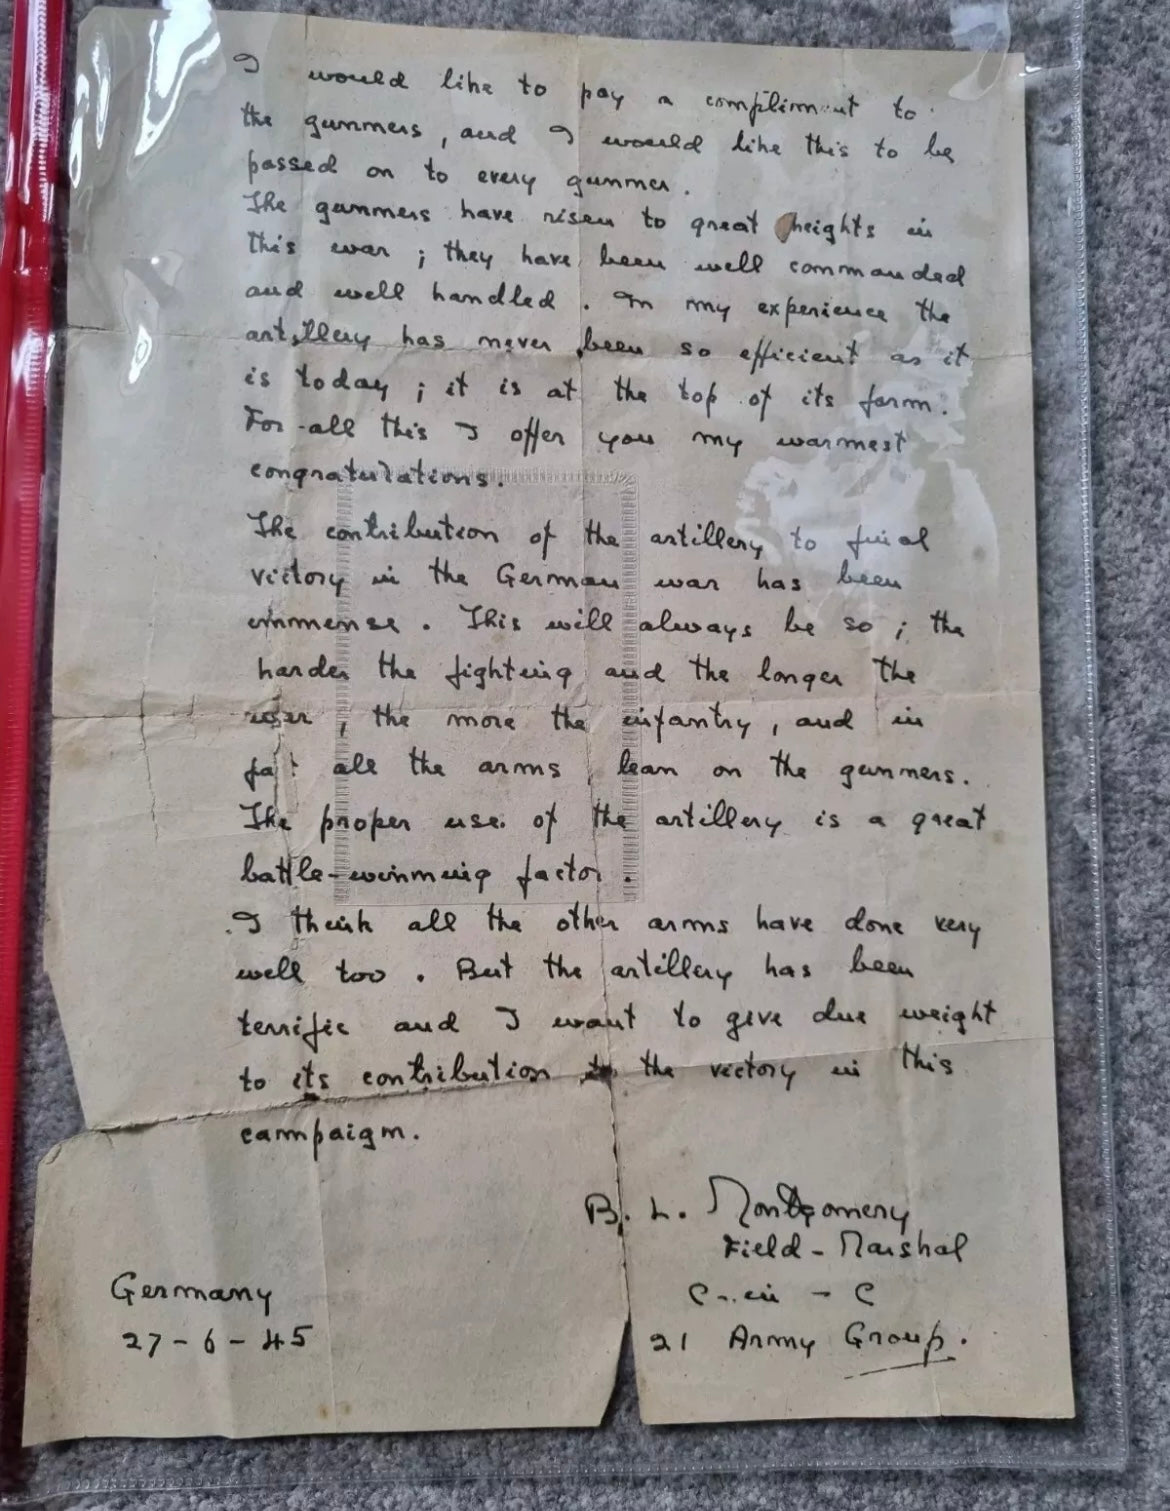 I would like to pay a compliment to
the gunners, and I would like this to be
passed on to every gunner.
The gunners have risen to great heights in
this war; they have been well commanded
and well handled. In my experience the
artillery has never been so efficient as it
is today; it is at the top of its form.
For all this I offer you my warmest
congratulations.
The contribution of the artillery to final
victory in the German war has been
immense. This will always be so; the
harder the fighting and the longer the
war, the more the infantry, and in
fact all the arms, lean on the gunners.
The proper use of the artillery is a great
battle-winning factor.
I think all the other arms have done very
well too. But the artillery has been
terrific and I want to give due weight
to its contribution to the victory in this
campaign.
B. L. Montgomery
Field-Marshal
C-in-C
21 Army Group.
Germany
27-6-45